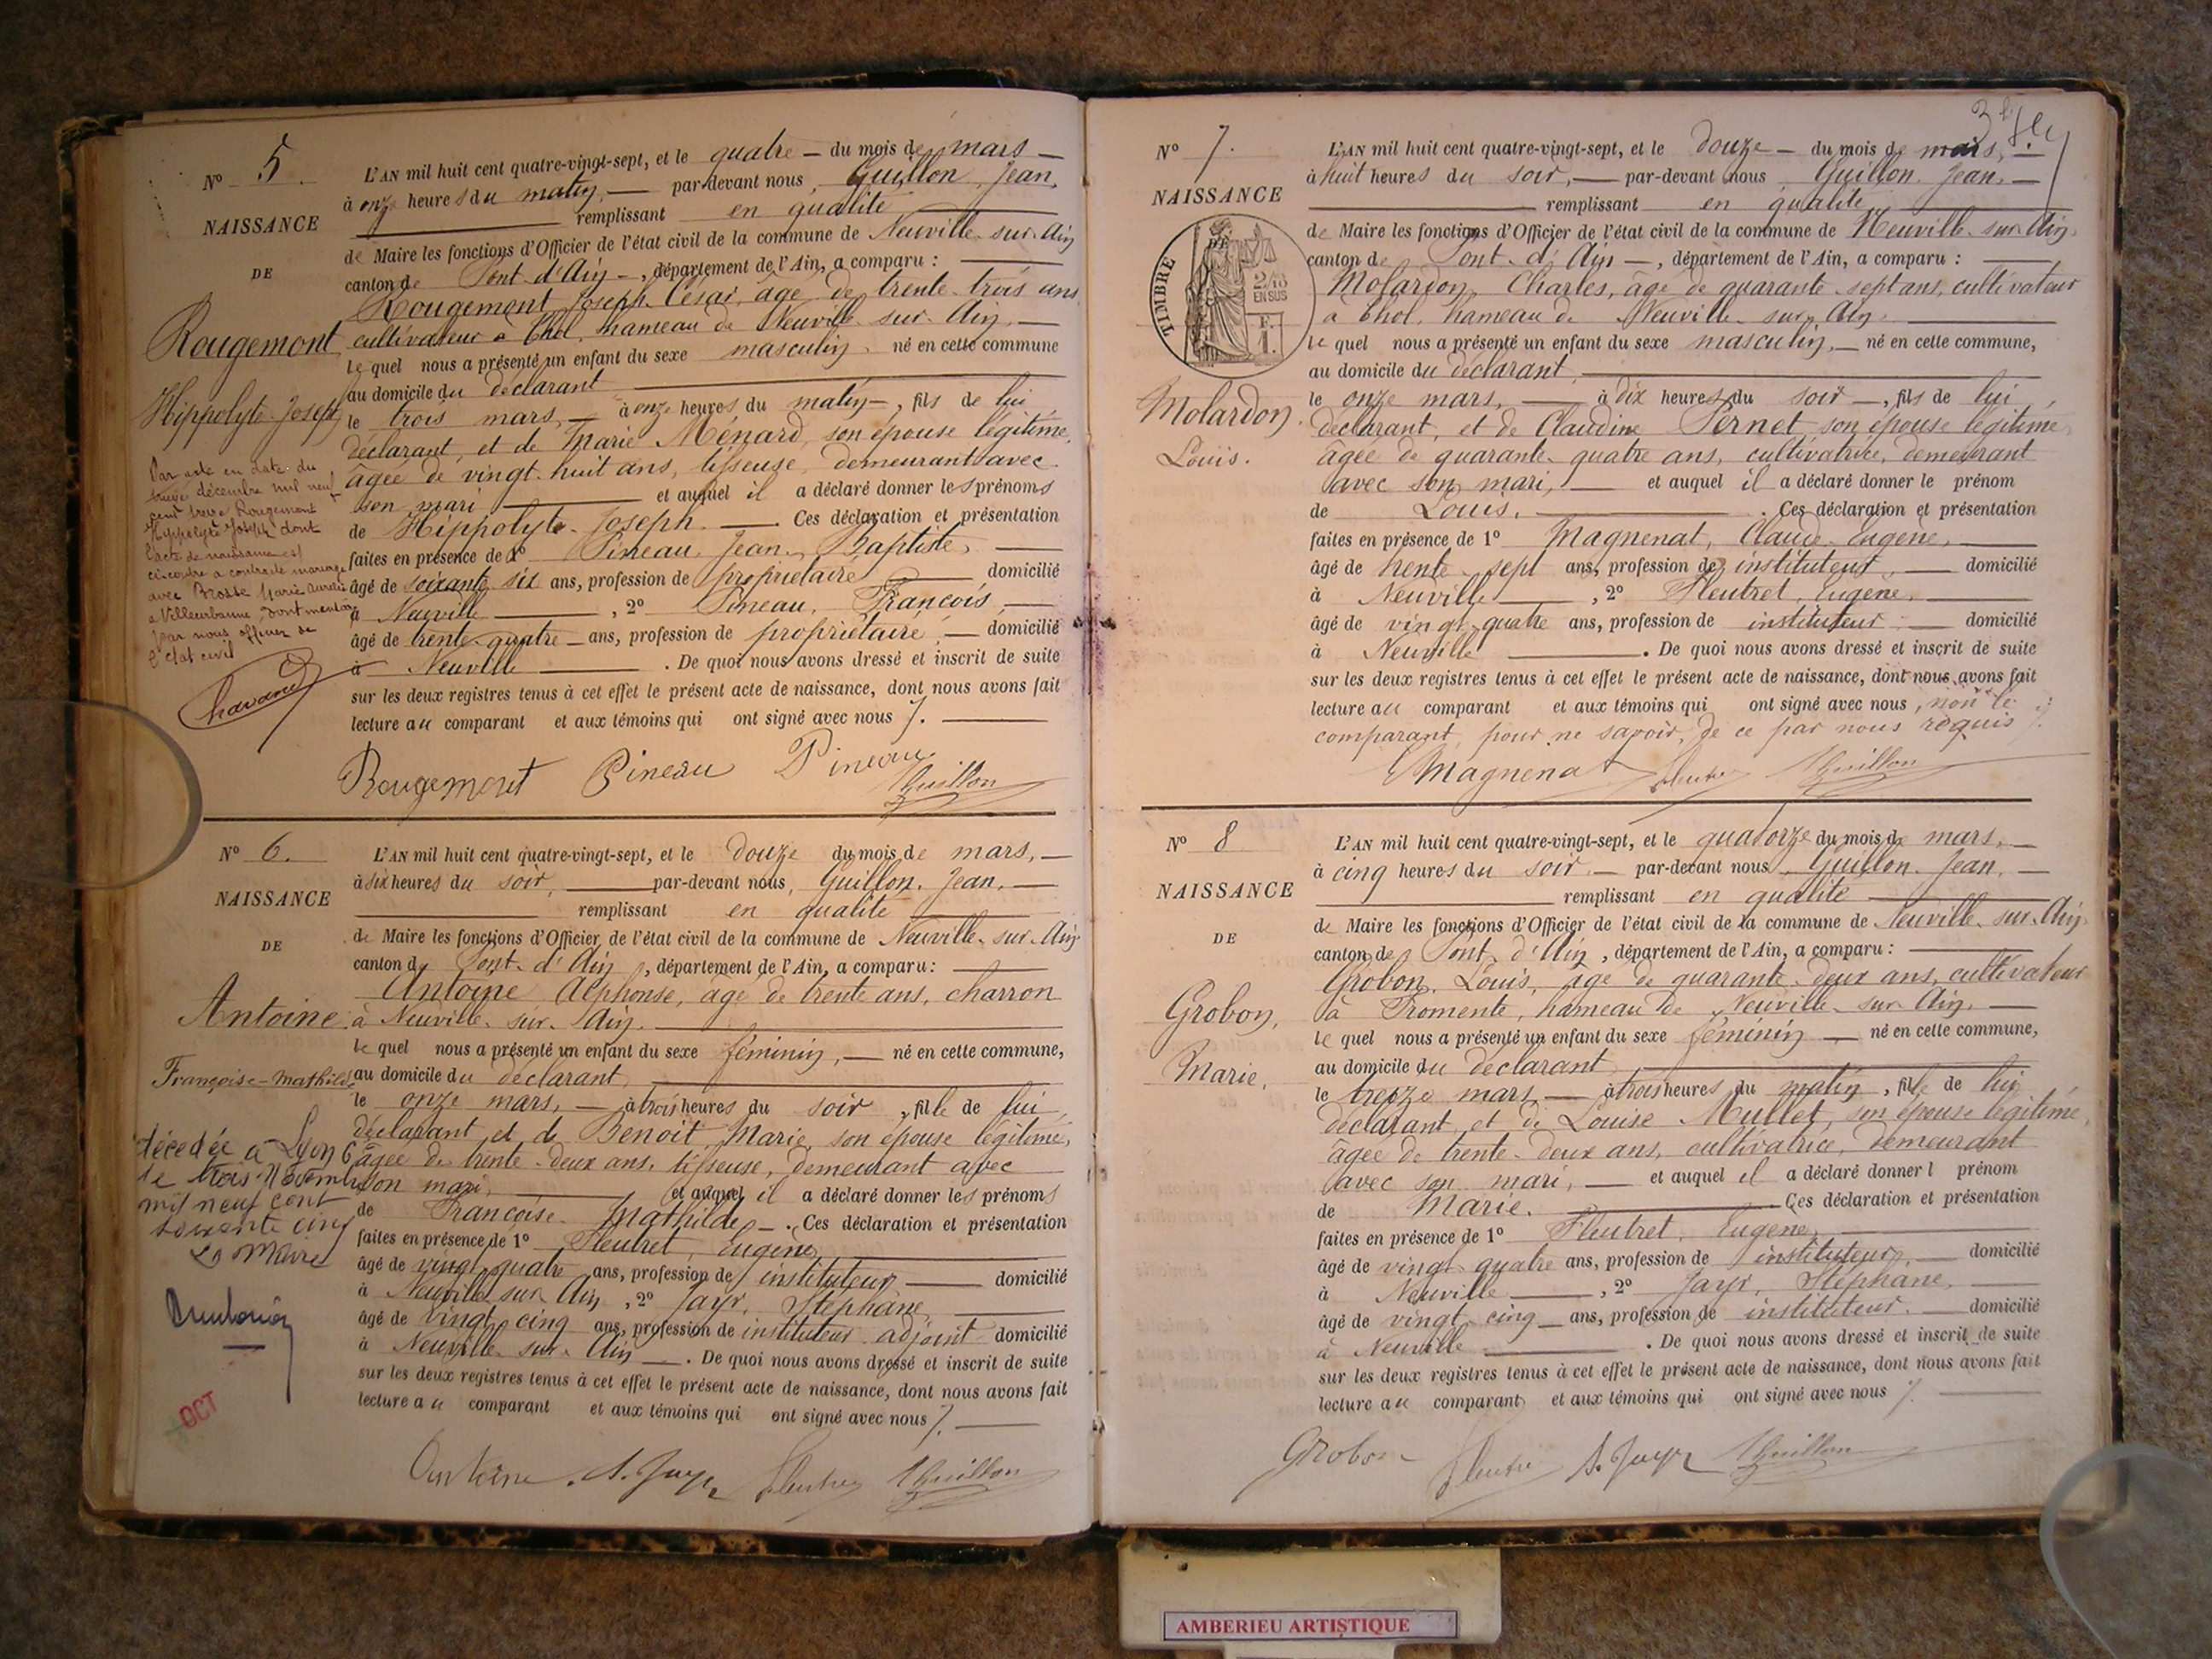 N° 5.
NAISSANCE
DE
Rougemont
Hippolyte-Joseph
Par acte en date du
décembre mil neuf
cent treize Rougemont
Hippolyte Joseph dont
l'acte de naissance est
ci-contre a contracté mariage
avec Brosse Marie Aurélie
à Villeurbanne, dont mention
par nous officier de
l'état civil
L'AN mil huit cent quatre-vingt-sept, et le quatre – du mois de mars —
à onze heures du matin, — par-devant nous, Guillon, Jean,
remplissant en qualité
de Maire les fonctions d'Officier de l'état civil de la commune de Neuville-sur-Ain
canton de Pont-d'Ain –, département de l'Ain, a comparu :
Rougemont Joseph César, âgé de trente-trois ans
cultivateur à Thol, hameau de Neuville-sur-Ain, —
lequel nous a présenté un enfant du sexe masculin, né en cette commune
au domicile du déclarant
le trois mars, — à onze heures du matin –, fils de lui
déclarant, et de Marie Ménard, son épouse légitime,
âgée de vingt-huit ans, tisseuse, demeurant avec
son mari — et auquel il a déclaré donner les prénoms
de Hippolyte-Joseph. — Ces déclaration et présentation
faites en présence de 1° Pineau, Jean-Baptiste, —
âgé de soixante-six ans, profession de propriétaire — domicilié
à Neuville —, 2° Pineau, François, —
âgé de trente-quatre – ans, profession de propriétaire, — domicilié
à Neuville — . De quoi nous avons dressé et inscrit de suite
sur les deux registres tenus à cet effet le présent acte de naissance, dont nous avons fait
lecture au comparant et aux témoins qui ont signé avec nous /. —
Rougemont Pineau Pineau Guillon
N° 6.
NAISSANCE
DE
Antoine
Françoise-Mathilde
décédée à Lyon 6
le trois Novembre
mil neuf cent
soixante cinq
Le Maire
OCT
L'AN mil huit cent quatre-vingt-sept, et le douze du mois de mars, —
à six heures du soir, — par-devant nous, Guillon, Jean, —
remplissant en qualité
de Maire les fonctions d'Officier de l'état civil de la commune de Neuville-sur-Ain
canton de Pont-d'Ain, département de l'Ain, a comparu :
Antoine Alphonse, âgé de trente ans, charron
à Neuville-sur-Ain. —
lequel nous a présenté un enfant du sexe féminin, — né en cette commune,
au domicile du déclarant,
le onze mars, — à trois heures du soir, fille de lui,
déclarant et de Benoit, Marie, son épouse légitime,
âgée de trente-deux ans, tisseuse, demeurant avec
son mari, — et auquel il a déclaré donner les prénoms
de Françoise-Mathilde –. Ces déclaration et présentation
faites en présence de 1° Fleutret, Eugène,
âgé de vingt-quatre ans, profession de instituteur — domicilié
à Neuville-sur-Ain, 2° Jayr, Stéphane,
âgé de vingt-cinq ans, profession de instituteur adjoint domicilié
à Neuville-sur-Ain —. De quoi nous avons dressé et inscrit de suite
sur les deux registres tenus à cet effet le présent acte de naissance, dont nous avons fait
lecture au comparant et aux témoins qui ont signé avec nous /. —
Antoine S. Jayr Fleutret Guillon
N° 7.
NAISSANCE
TIMBRE
2/10 EN SUS
F. 1.
Molardon
Louis.
L'AN mil huit cent quatre-vingt-sept, et le douze – du mois de mars, —
à huit heures du soir, — par-devant nous, Guillon, Jean, —
remplissant en qualité
de Maire les fonctions d'Officier de l'état civil de la commune de Neuville-sur-Ain,
canton de Pont-d'Ain —, département de l'Ain, a comparu :
Molardon, Charles, âgé de quarante-sept ans, cultivateur
à Thol, hameau de Neuville-sur-Ain.
lequel nous a présenté un enfant du sexe masculin, — né en cette commune,
au domicile du déclarant,
le onze mars, — à dix heures du soir —, fils de lui,
déclarant, et de Claudine Pernet son épouse légitime
âgée de quarante-quatre ans, cultivatrice, demeurant
avec son mari, — et auquel il a déclaré donner le prénom
de Louis. — . Ces déclaration et présentation
faites en présence de 1° Magnenat, Claude-Eugène, —
âgé de trente-sept ans, profession de instituteur, — domicilié
à Neuville —, 2° Fleutret, Eugène, —
âgé de vingt-quatre ans, profession de instituteur — domicilié
à Neuville — . De quoi nous avons dressé et inscrit de suite
sur les deux registres tenus à cet effet le présent acte de naissance, dont nous avons fait
lecture au comparant et aux témoins qui ont signé avec nous, non le
comparant, pour ne savoir, de ce par nous requis /.
Magnenat Fleutret Guillon
N° 8
NAISSANCE
DE
Grobon,
Marie.
L'AN mil huit cent quatre-vingt-sept, et le quatorze du mois de mars, —
à cinq heures du soir — par-devant nous, Guillon, Jean, —
remplissant en qualité
de Maire les fonctions d'Officier de l'état civil de la commune de Neuville-sur-Ain
canton de Pont-d'Ain, département de l'Ain, a comparu :
Grobon, Louis, âgé de quarante-deux ans, cultivateur
à Fromente, hameau de Neuville-sur-Ain, —
lequel nous a présenté un enfant du sexe féminin — né en cette commune,
au domicile du déclarant
le treize mars, — à trois heures du matin, fille de lui
déclarant, et de Louise Mullet, son épouse légitime,
âgée de trente-deux ans, cultivatrice, demeurant
avec son mari, — et auquel il a déclaré donner l prénom
de Marie. — Ces déclaration et présentation
faites en présence de 1° Fleutret, Eugène,
âgé de vingt-quatre ans, profession de instituteur, — domicilié
à Neuville —, 2° Jayr, Stéphane, —
âgé de vingt-cinq – ans, profession de instituteur. — domicilié
à Neuville — . De quoi nous avons dressé et inscrit de suite
sur les deux registres tenus à cet effet le présent acte de naissance, dont nous avons fait
lecture au comparant et aux témoins qui ont signé avec nous /. —
Grobon Fleutret S. Jayr Guillon
AMBERIEU ARTISTIQUE